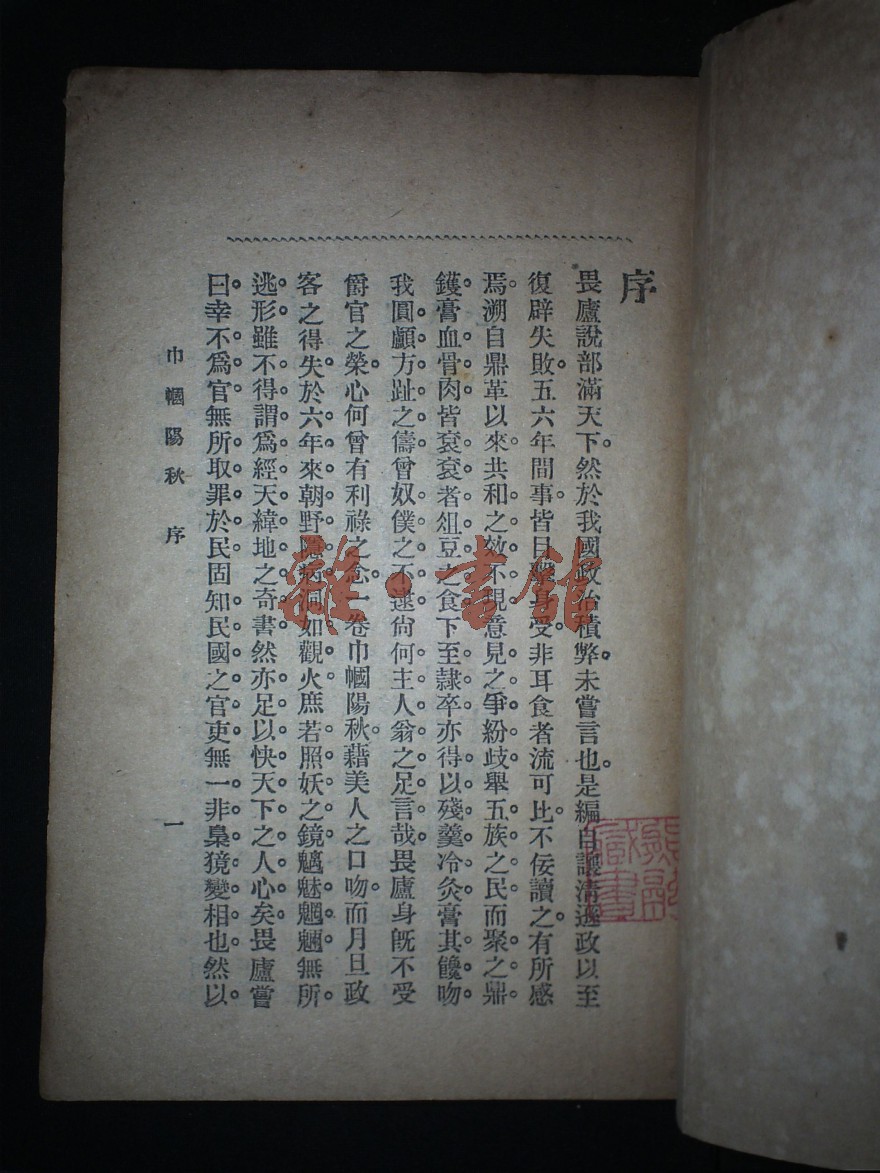 序
畏廬說部滿天下。然於我國政治積弊。未嘗言也。是編自讓清遜政以至
復辟失敗。五六年間事。皆目擊身受。非耳食者流可比。不佞讀之。有所感
焉。溯自鼎革以來。共和之效不現。意見之爭紛歧。舉五族之民而聚之鼎
鑊。膏血骨肉。皆袞袞者俎豆之食。下至隸卒。亦得以殘羹冷灸。膏其饞吻。
我圓顱方趾之儔。曾奴僕之不逮。尙何主人翁之足言哉。畏廬身旣不受
爵官之榮。心何曾有利祿之念。一卷巾幗陽秋。藉美人之口吻。而月旦政
客之得失。於六年來朝野隱病。洞如觀火。庶若照妖之鏡。魑魅魍魎。無所
逃形。雖不得謂爲經天緯地之奇書。然亦足以快天下之人心矣。畏廬嘗
曰。幸不爲官。無所取罪於民。固知民國之官吏。無一非梟獍變相也。然以
巾幗陽秋 序 一
雜·書館
藏書